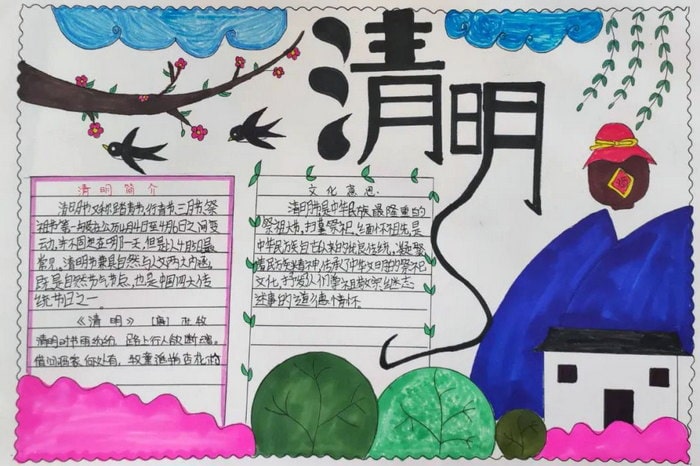 清明
清明简介
清明节又称踏青节、行清节、三月节、祭
祖节等,一般在公历4月4日至4月6日之间变
动,并不固定在哪一天,但是以4月5日最
常见。清明节兼具自然与人文两大内涵,
既是自然节气节日,也是中国四大传
统节日之一
《清明》 [唐] 杜牧
清明时节雨纷纷 路上行人欲断魂。
借问酒家何处有,牧童遥指杏花村
文化意思
清明节是中华民族最隆重的
祭祖大节,扫墓祭祀、缅怀祖先是
中华民族自古以来的优良传统,凝聚
着民族精神,传承了中华文明的祭祀
文化,抒发人们尊祖敬宗继志
述事的道德情怀